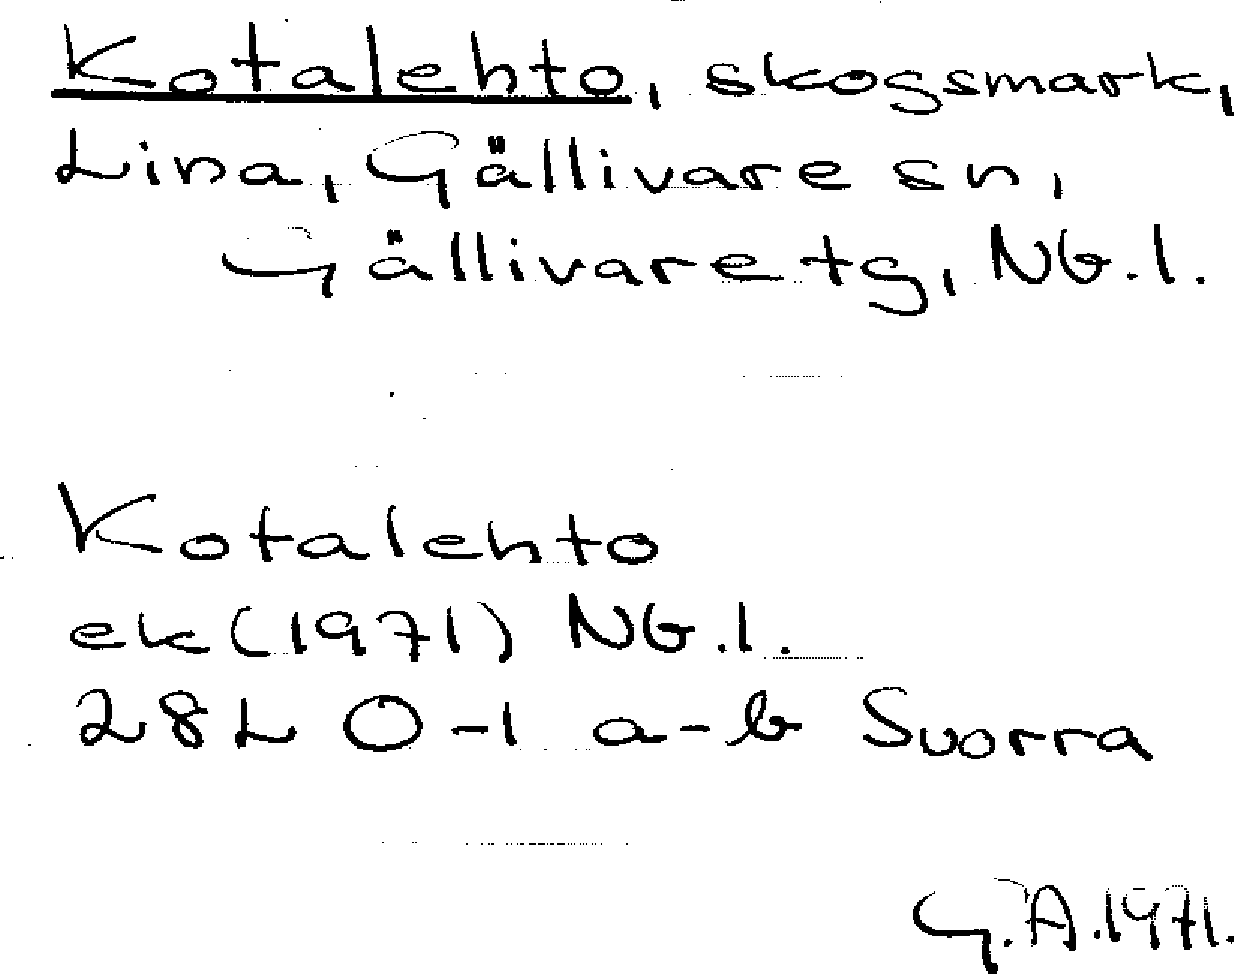 Kotalehto, skogsmark,
Lina, Gällivare sn,
Gällivare tg, NG.l.
Kotalehto
ek (1971) NG.l.
28L 0-1 a-b Suorra
G.A.1971.